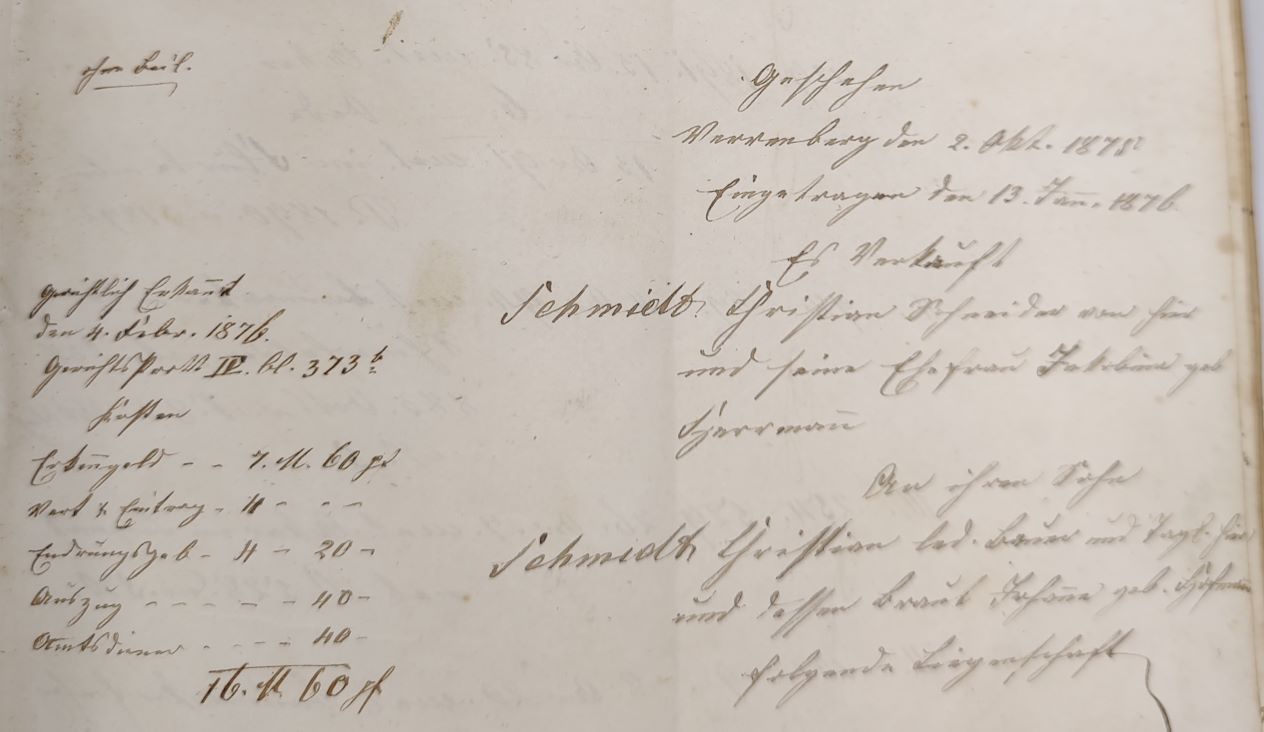 ohne Beil.
Gerichtlich Erkannt
den 4. Febr. 1876.
Gerichts Prott IV. bl. 373 b
Kosten
Erkenngeld - - 7. M. 60 pf
Vert & Eintrag - 4 - - -
Endrungsgeb - 4 - 20 -
Auszug - - - - - 40 -
Amtsdiener - - - - 40 -
16. M. 60 pf
Geschehen
Verrenberg den 2. Okt. 1875
Eingetragen den 13. Jan̄. 1876
Es Verkauft
Schmidt, Christian Schneider von hier
und seine Ehefrau Jakobine geb
Herrman̄
An ihren Sohn
Schmidt, Christian led. Bauer und hier
und dessen Braut Johan̄e geb. Hofman̄
folgende Liegenschaft